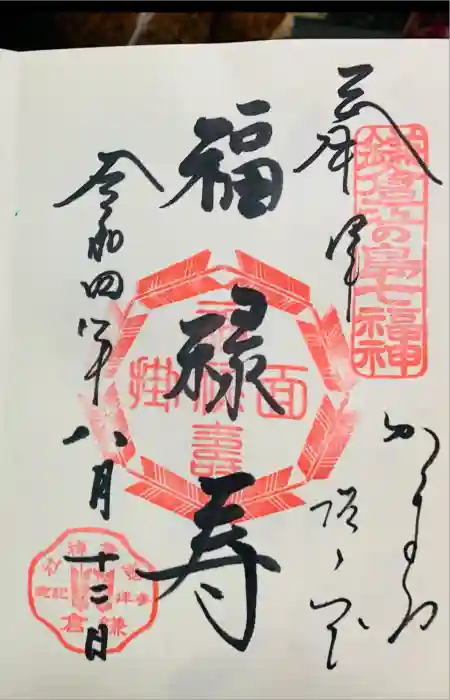 奉拝
鎌倉江の島七福神
かまくら
福禄寿
面掛
福禄寿
令和四年八月十二日
鎌倉